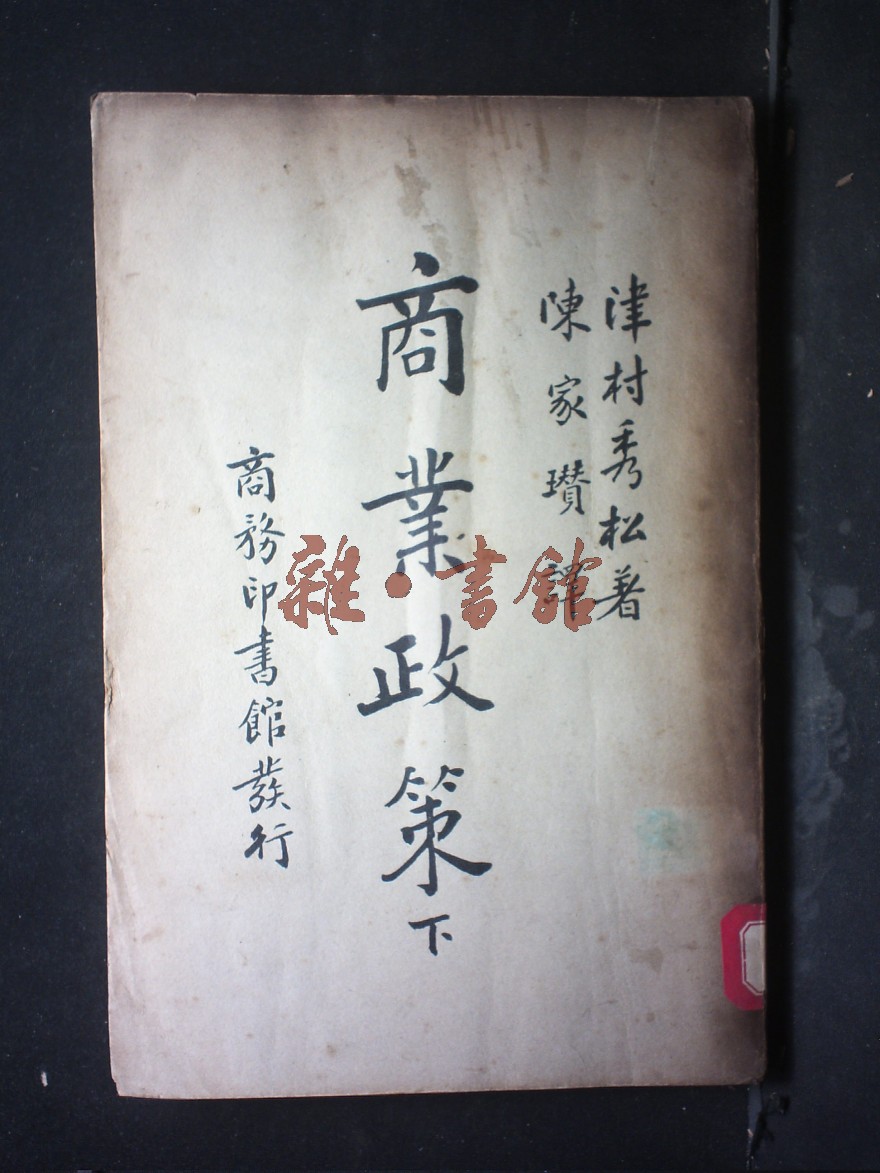 津村秀松著
陳家瓚譯
商業政策下
商務印書館發行
雜·書館